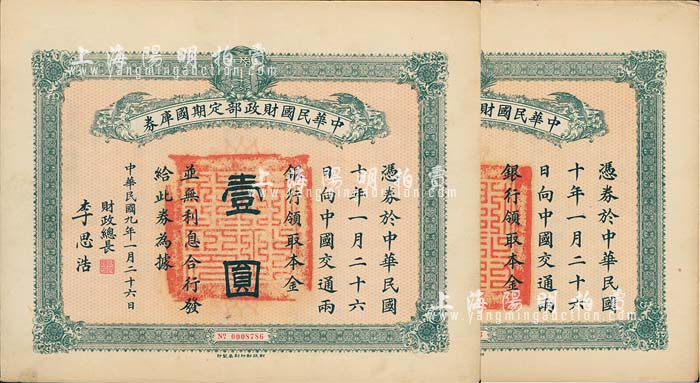 上海陽明拍賣
www.yangmingauction.com
中華民國財政部定期國庫券
憑券於中華民國
十年一月二十六
日向中國交通兩
銀行領取本金
壹圓
並無利息合行發
給此券為據
中華民國九年一月二十六日
財政總長
李思浩
No 0008786
財政部印刷局製印
中華民國財
憑券於中華民國
十年一月二十六
日向中國交通兩
銀行領取本金
上海陽明拍賣
www.yangmingauction.com